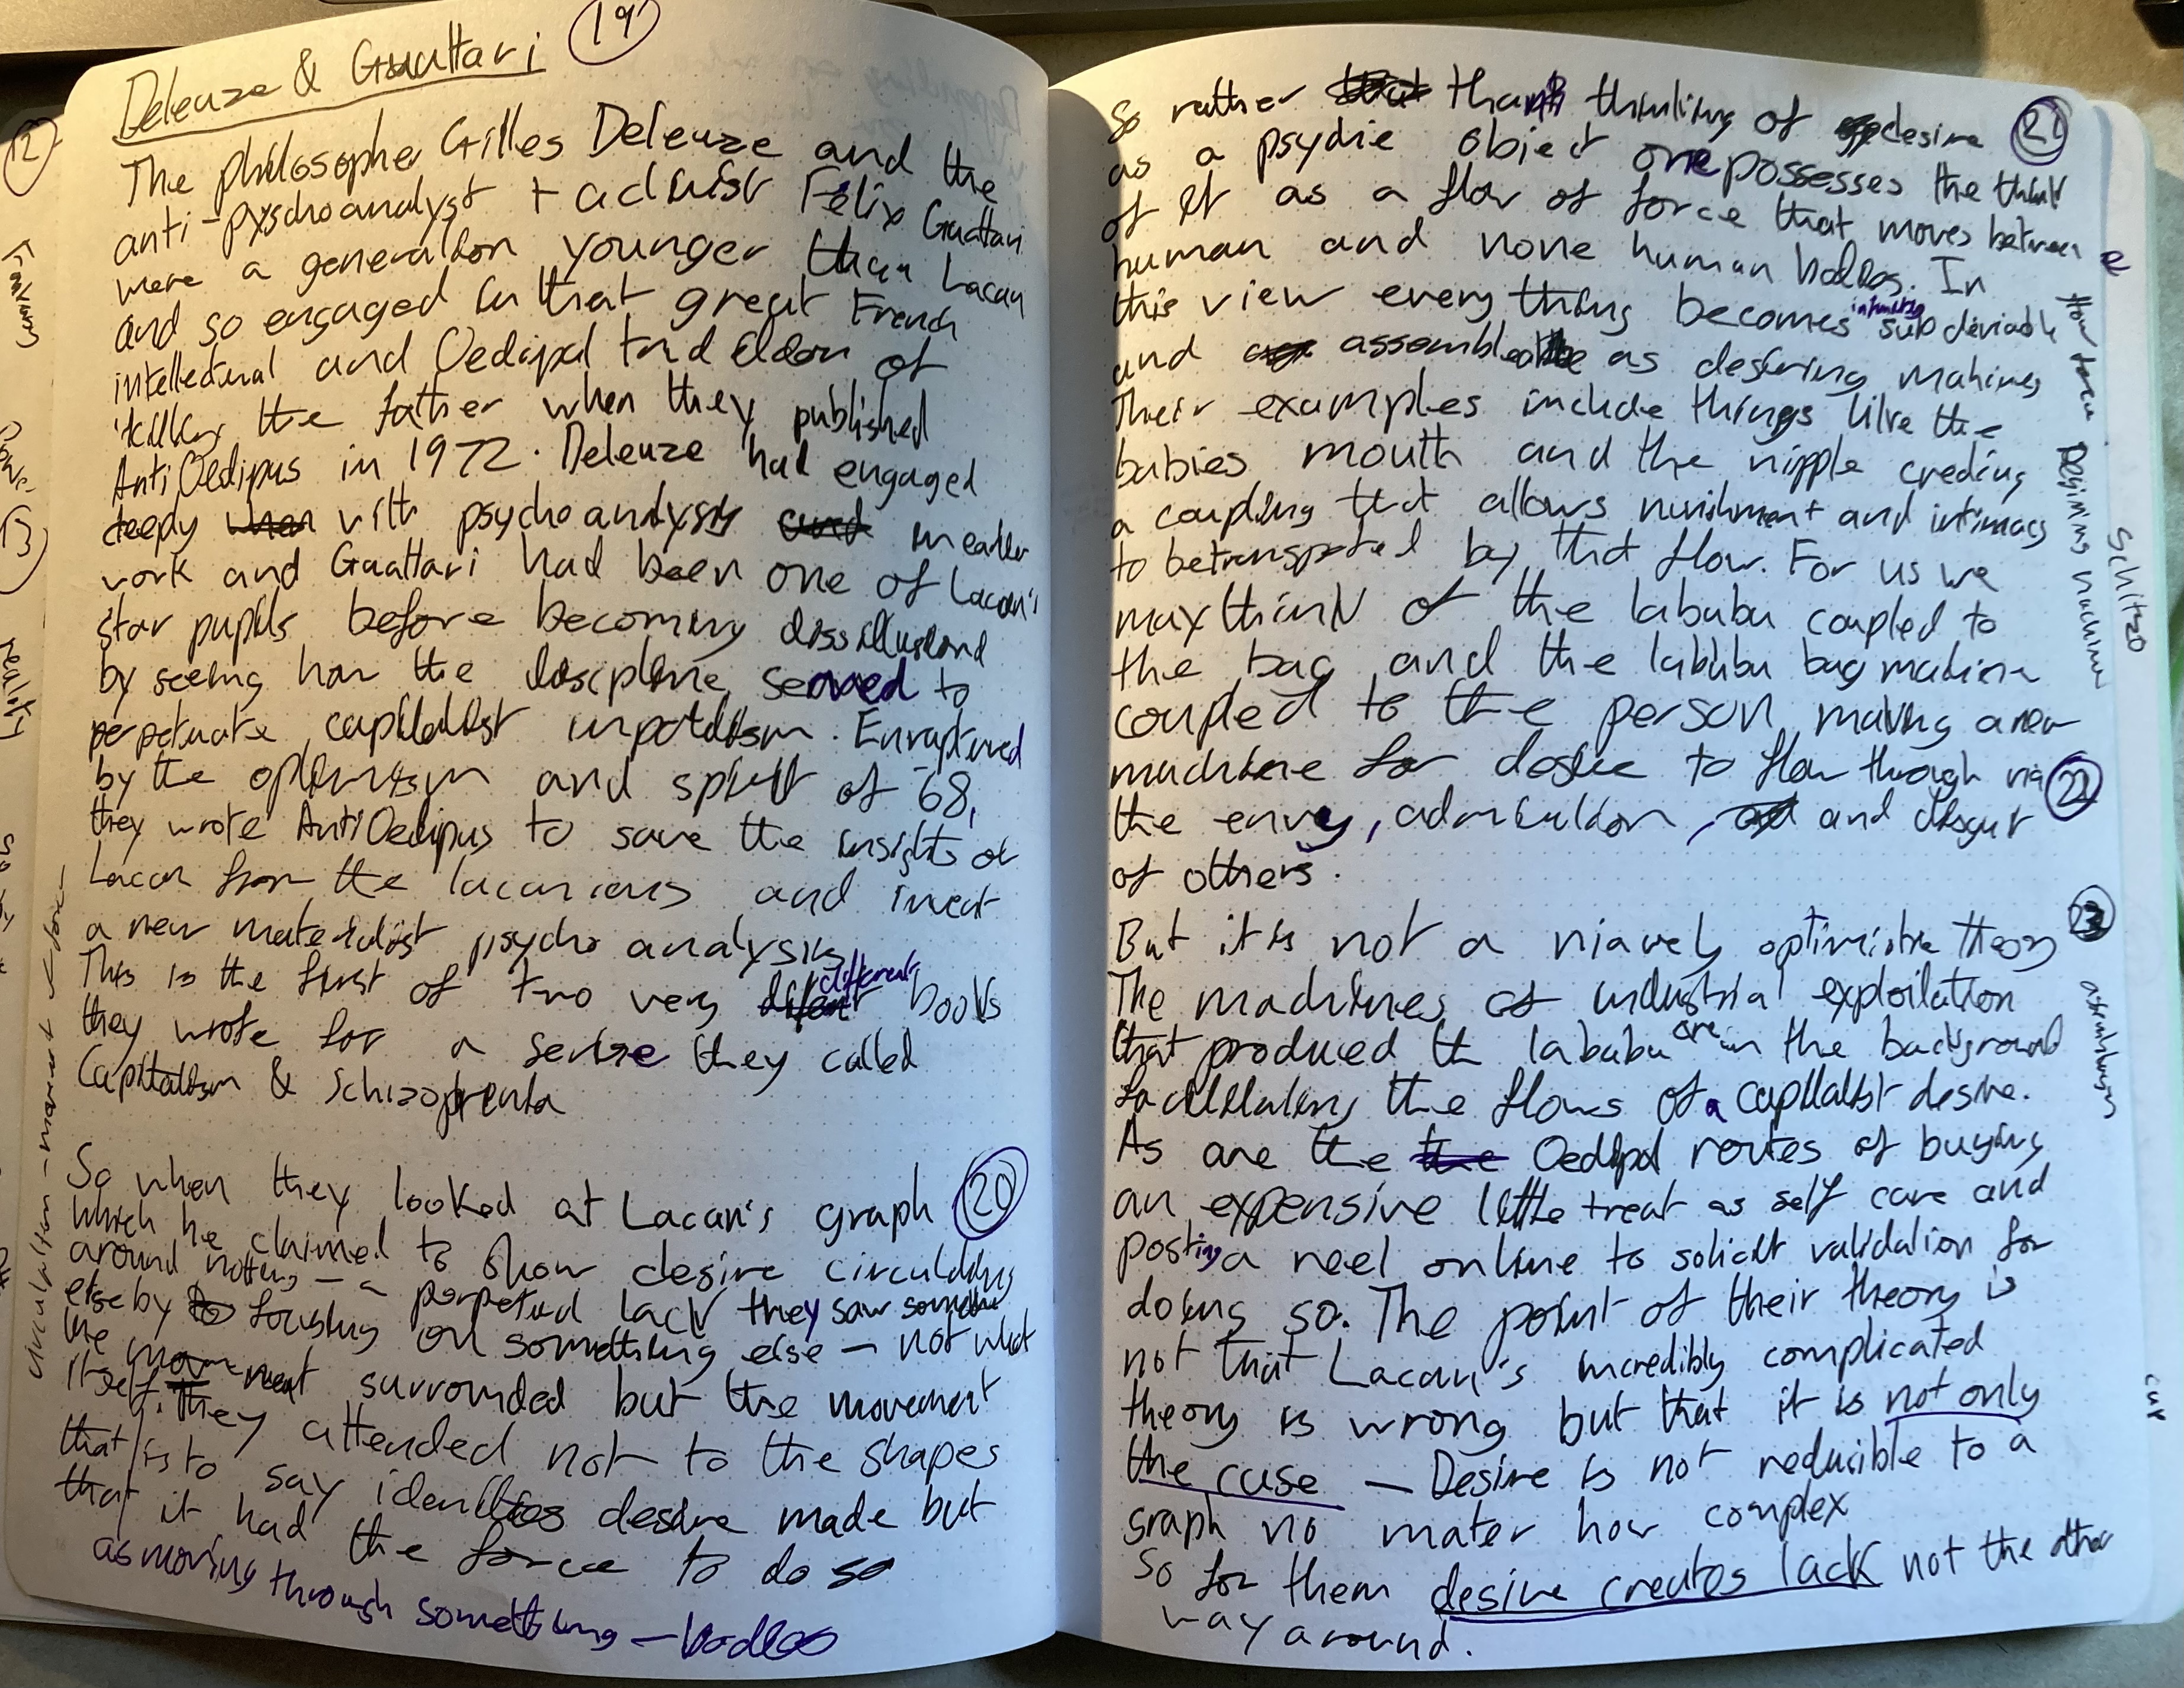 Deleuze & Guattari (19)
The philosopher Gilles Deleuze and the
anti-pyschoanalyst + activist Félix Guattari
were a generation younger than Lacan
and so engaged in that great French
intellectural and Oedipal tradition of
killing the father when they published
AntiOedipus in 1972. Deleuze had engaged
deeply with psychoanalysis in earlier
work and Guattari had been one of Lacan's
star pupils before becoming dissillusiond
by seeing how the discipline served to
perpetuate capitalist imperialism. Enraptured
by the optimism and spirit of '68,
they wrote AntiOedipus to save the insights of
Lacan from the lacanians and invent
a new materialist psycho analysis
This is the first of two very different books
they wrote for a serise they called
Capitalism & Schizophrenia
So when they looked at Lacan's graph (20)
which he claimed to show desire circulating
around nothing – a perpetual lack they saw something
else by focusing on something else – not what
the movement surrounded but the movement
itself. They attended not to the shapes
that is to say identities desire made but
that it had the force to do so
as moving through something – bodies
circulation – movement
So rather than thinking of desire (21)
as a psychic object one possesses the think
of it as a flow of force that moves between
human and none human bodies. In
this view everything becomes infinitely subdeviable
and assembleable as desiring mahines
Their examples include things like the
babies mouth and the nipple creating
a coupling that allows nurishment and intimacy
to be transported by that flow. For us we
may think of the labubu coupled to
the bag and the labubu bag machine
coupled to the person making a new
machine for desire to flow through via (22)
the envy, admiration, and disgust
of others.
But it is not a niavely optimistic theory (23)
The machines of industrial exploitation
that produced the labubu are in the background
facilitating the flows of a capitalist desire.
As are the Oedipal routes of buying
an expensive little treat as self care and
posting a reel online to solicit validation for
doing so. The point of their theory is
not that Lacan's incredibly complicated
theory is wrong but that it is not only
the case – Desire is not reducible to a
graph no mater how complex
So for them desire creates lack not the other
way around.
Schitzo